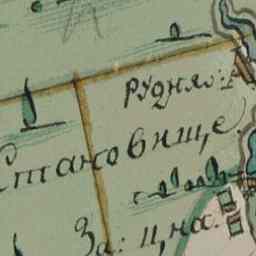 рудня:
Становище
За: ц,на: